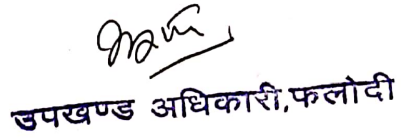 उपखण्ड अधिकारी,फलोदी